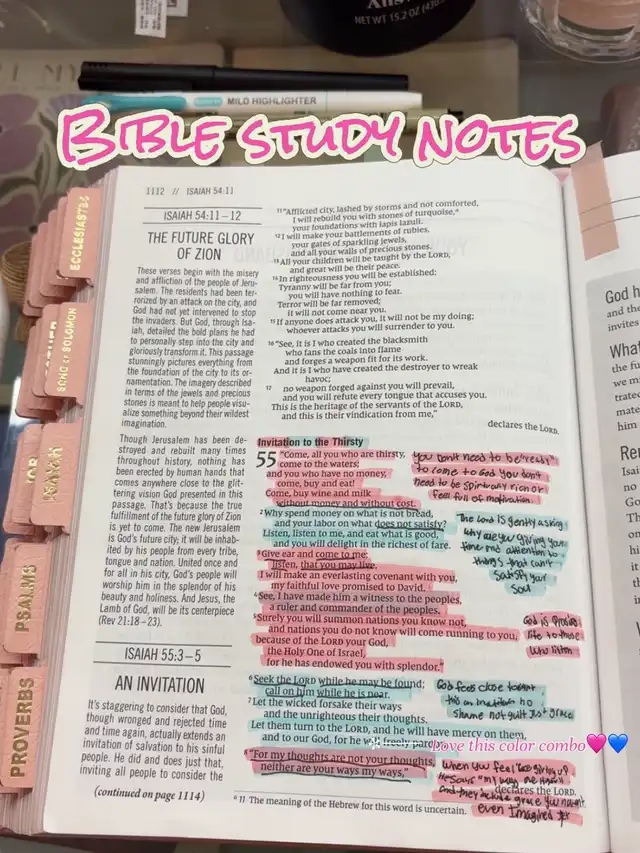 NET WT 15.2 OZ
MILD HIGHLIGHTER
BIBLE STUDY NOTES
ECCLESIASTES
SONG OF SOLOMON
ISAIAH
JOB
PSALMS
PROVERBS
1112 // ISAIAH 54:11
ISAIAH 54:11–12
THE FUTURE GLORY
OF ZION
These verses begin with the misery
and affliction of the people of Jeru-
salem. The residents had been ter-
rorized by an attack on the city, and
God had not yet intervened to stop
the invaders. But God, through Isa-
iah, detailed the bold plans he had
to personally step into the city and
gloriously transform it. This passage
stunningly pictures everything from
the foundation of the city to its or-
namentation. The imagery described
in terms of the jewels and precious
stones is meant to help people visu-
alize something beyond their wildest
imagination.
Though Jerusalem has been de-
stroyed and rebuilt many times
throughout history, nothing has
been erected by human hands that
comes anywhere close to the glit-
tering vision God presented in this
passage. That's because the true
fulfillment of the future glory of Zion
is yet to come. The new Jerusalem
is God's future city; it will be inhab-
ited by his people from every tribe,
tongue and nation. United once and
for all in his city, God's people will
worship him in the splendor of his
beauty and holiness. And Jesus, the
Lamb of God, will be its centerpiece
(Rev 21:18–23).
ISAIAH 55:3–5
AN INVITATION
It's staggering to consider that God,
though wronged and rejected time
and time again, actually extends an
invitation of salvation to his sinful
people. He did and does just that,
inviting all people to consider the
(continued on page 1114)
11 "Afflicted city, lashed by storms and not comforted,
I will rebuild you with stones of turquoise,a
your foundations with lapis lazuli.
12 I will make your battlements of rubies,
your gates of sparkling jewels,
and all your walls of precious stones.
13 All your children will be taught by the LORD,
and great will be their peace.
14 In righteousness you will be established:
Tyranny will be far from you;
you will have nothing to fear.
Terror will be far removed;
it will not come near you.
15 If anyone does attack you, it will not be my doing;
whoever attacks you will surrender to you.
16 "See, it is I who created the blacksmith
who fans the coals into flame
and forges a weapon fit for its work.
And it is I who have created the destroyer to wreak
havoc;
17 no weapon forged against you will prevail,
and you will refute every tongue that accuses you.
This is the heritage of the servants of the LORD,
and this is their vindication from me,"
declares the LORD.
Invitation to the Thirsty
55 "Come, all you who are thirsty,
come to the waters;
and you who have no money,
come, buy and eat!
Come, buy wine and milk
without money and without cost.
2 Why spend money on what is not bread,
and your labor on what does not satisfy?
Listen, listen to me, and eat what is good,
and you will delight in the richest of fare.
3 Give ear and come to me;
listen, that you may live.
I will make an everlasting covenant with you,
my faithful love promised to David.
4 See, I have made him a witness to the peoples,
a ruler and commander of the peoples.
5 Surely you will summon nations you know not,
and nations you do not know will come running to you,
because of the LORD your God,
the Holy One of Israel,
for he has endowed you with splendor."
6 Seek the LORD while he may be found;
call on him while he is near.
7 Let the wicked forsake their ways
and the unrighteous their thoughts.
Let them turn to the LORD, and he will have mercy on them,
and to our God, for he will freely
8 "For my thoughts are not your thoughts,
neither are your ways my ways,"
declares the LORD.
a 11 The meaning of the Hebrew for this word is uncertain.
You don't need to be "ready"
to come to God you don't
need to be Spirituary rich or
feel full of motivation.
The Lord is gently asking
why are you giving your
time and attention to
things that can't
Satisfy your
Soul
God is
life to those
who listen
God feels close
this an invitation no
Shame not guilt Just grace
Love this color combo🩷💙
when you feel like giving up
He says "my way are higher
and they include grace you havent
even Imagined yet
God h
and the
invites
What
the fu
we m
trated
mater
him
Re
Isai
no